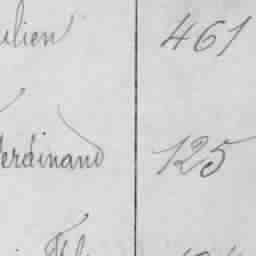 ulien 461
Ferdinand 125